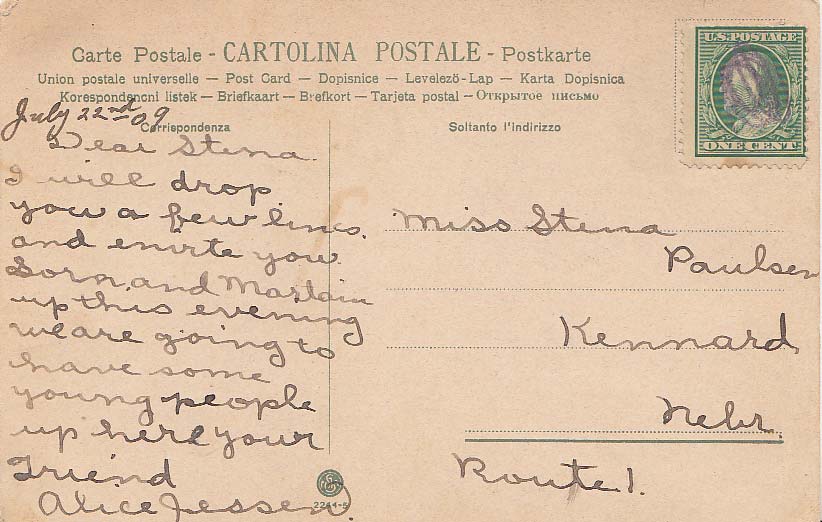 Carte Postale - CARTOLINA POSTALE - Postkarte
Union postale universelle — Post Card — Dopisnice — Levelező-Lap — Karta Dopisnica
Korespondencni listek — Briefkaart — Brefkort — Tarjeta postal — Открытое письмо
U.S. POSTAGE
ONE CENT
July 22nd 09
Corrispondenza
Soltanto l'indirizzo
Dear Stena.
I will drop
you a few lines.
and envite you
Sorn, and Martain
up this evening
we are going to
have some
young people
up here your
Friend
Alice Jessen.
Miss Stena
Paulsen
Kennard
Nebr.
Route 1.
2244-5